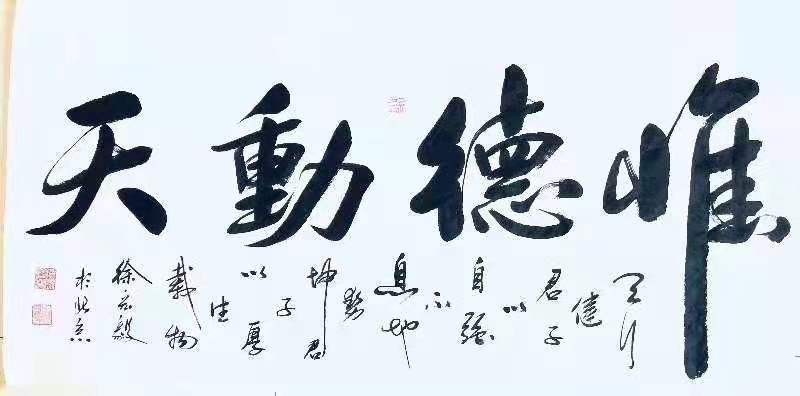 惟德動天
天行
健
君子
以
自强
不
息地
勢
坤君
子
以厚
德
載物
徐毅
於北京